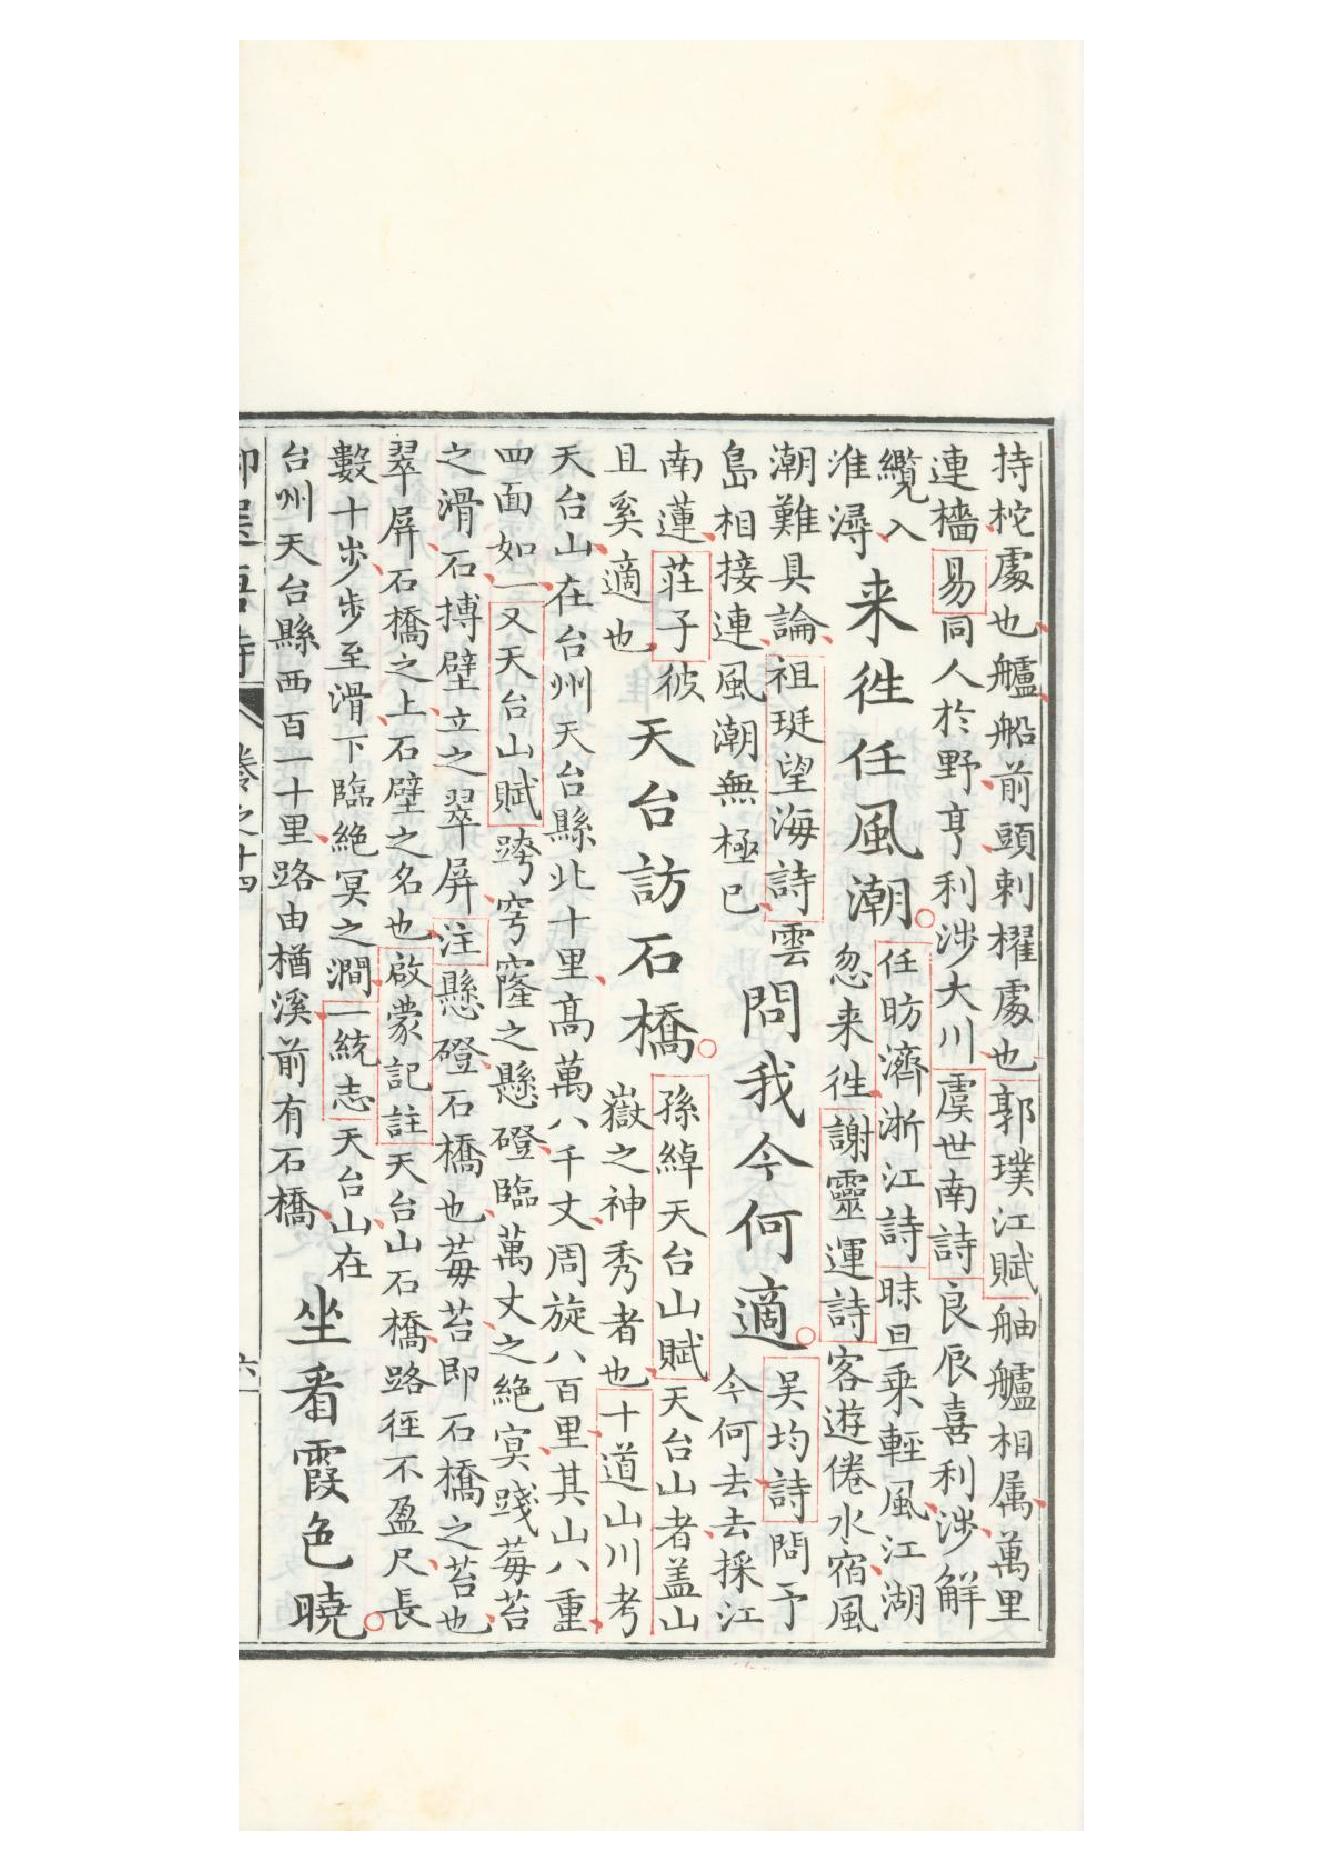 持柁處也艫船前頭刺櫂處也郭璞江賦舳艫相属萬里
連檣易同人於野亨利涉大川虞世南詩良辰喜利涉解
纜入
淮潯
来徃任風潮
任昉濟浙江詩昧旦乘輕風江湖
忽来徃謝靈運詩客遊倦水宿風
潮難具論祖珽望海詩雲
島相接連風潮無極已
問我今何適
吴均詩問予
今何去去採江
南蓮莊子彼
且奚適也
天台訪石橋
孫綽天台山賦天台山者盖山
嶽之神秀者也十道山川考
天台山在台州天台縣北十里高萬八千丈周旋八百里其山八重
四面如一又天台山賦跨穹窿之懸磴臨萬丈之絶冥踐莓苔
之滑石搏壁立之翠屏注懸磴石橋也莓苔即石橋之苔也
翠屏石橋之上石壁之名也啟蒙記註天台山石橋路徑不盈尺長
數十步步至滑下臨絶冥之澗一統志天台山在
台州天台縣西百一十里路由楢溪前有石橋
坐看霞色曉
御選唐詩 卷之十四 六